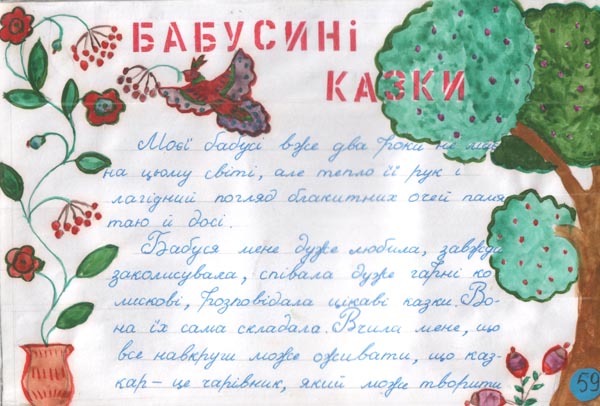 БАБУСИНІ
КАЗКИ
Моєї бабусі вже два роки не має
на цьому світі, але тепло її рук і
лагідний погляд блакитних очей памя
таю й досі.
Бабуся мене дуже любила, завжди
заколисувала, співала дуже гарні ко
лискові, розповідала цікаві казки. Во-
на їх сама складала. Вчила мене, що
все навкруги може оживати, що каз-
кар – це чарівник, який може творити
59